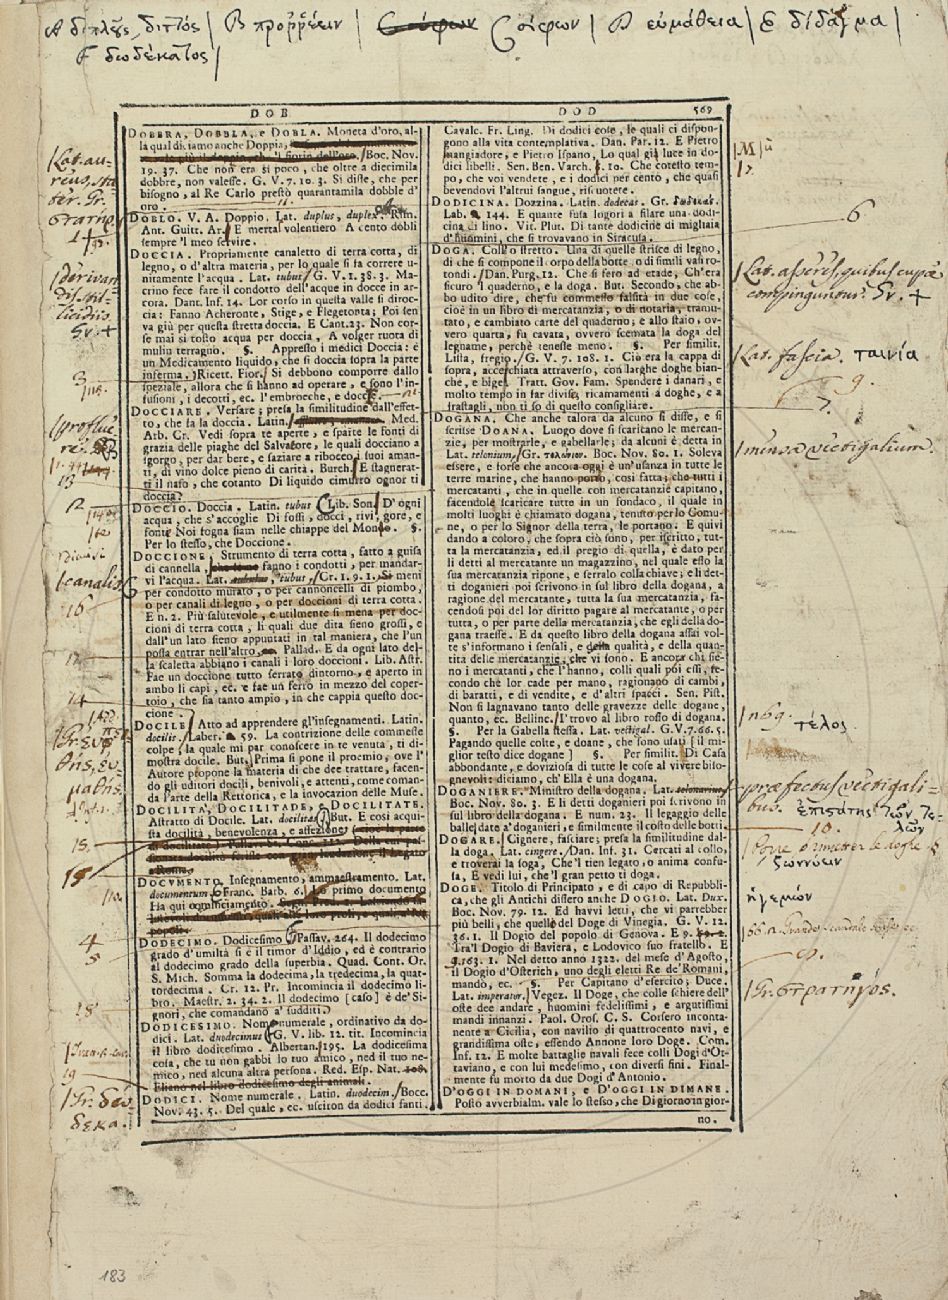 A διπλοῦς, διττὸς | B προῤῥέειν | C σίφων | D εὐμάθεια | E δίδαγμα |
F δωδέκατος |
DOB
DOD 569
DOBBRA, DOBBLA, e DOBLA. Moneta d'oro, al-
la qual diciamo anche Doppia,
Boc. Nov.
19. 37. Che non era sì poco, che oltre a diecimila
dobbre, non valesse. G. V. 7. 10. 3. Si disse, che per
bisogno, al Re Carlo prestò quarantamila dobble d'
oro.
DOBLO. V. A. Doppio. Lat. duplus, duplex. Rim.
Ant. Guitt. Ar. E mertal volentiero A cento dobli
sempre 'l meo servire.
DOCCIA. Propriamente canaletto di terra cotta, di
legno, o d'altra materia, per lo quale si fa correre u-
nitamente l'acqua. Lat. tubus. G. V. 1. 38. 3. Ma-
crino fece fare il condotto dell'acque in docce in ar-
cora. Dant. Inf. 14. Lor corso in questa valle si diroc-
cia: Fanno Acheronte, Stige, e Flegetonta; Poi sen
va giù per questa stretta doccia. E Cant. 23. Non cor-
se mai sì tosto acqua per doccia, A volger ruota di
mulin terragno. §. Appresso i medici Doccia: è
un Medicamento liquido, che si doccia sopra la parte
inferma. Ricett. Fior. Si debbono comporre dallo
speziale, allora che si hanno ad operare, e sono l'in-
fusioni, i decotti, ec. l'embrocche, e docce.
DOCCIARE. Versare; presa la similitudine dall'effet-
to, che fa la doccia. Latin.
Med.
Arb. Cr. Vedi sopra te aperte, e sparte le fonti di
grazia delle piaghe del Salvatore, le quali docciano a
sgorgo, per dar bere, e saziare a ribocco i suoi aman-
ti, di vino dolce pieno di carità. Burch. E stagnerat-
ti il naso, che cotanto Di liquido cimurro ognor ti
doccia?
DOCCIO. Doccia. Latin. tubus Lib. Son. D'ogni
acqua, che s'accoglie Di fossi, docci, rivi, gore, e
fonti Noi fogna siam nelle chiappe del Mondo. §.
Per lo stesso, che Doccione.
DOCCIONE. Strumento di terra cotta, fatto a guisa
di cannella, fanno i condotti, per mandar-
vi l'acqua. Lat. tubus, Cr. 1. 9. 1. Si meni
per condotto murato, o per cannoncelli di piombo,
o per canali di legno, o per doccioni di terra cotta.
E n. 2. Più salutevole, e utilmente si mena per doc-
cioni di terra cotta, li quali due dita sieno grossi, e
dall'un lato sieno appuntati in tal maniera, che l'un
possa entrar nell'altro, Pallad. E da ogni lato del-
la scaletta abbiano i canali i loro doccioni. Lib. Astr.
Fae un doccione tutto serrato dintorno, e aperto in
ambo li capi, ec. e fae un ferro in mezzo del coper-
toio, che sia tanto ampio, in che cappia questo doc-
cione.
DOCILE. Atto ad apprendere gl'insegnamenti. Latin.
docilis. Laber. 59. La contrizione delle commesse
colpe, la quale mi par conoscere in te venuta, ti di-
mostra docile. But. Prima si pone il proemio, ove l'
Autore propone la materia di che dee trattare, facen-
do gli uditori docili, benivoli, e attenti, come coman-
da l'arte della Rettorica, e la invocazion delle Muse.
DOCILITÀ, DOCILITADE, e DOCILITATE.
Astratto di Docile. Lat. docilitas. But. E così acqui-
sta docilità, benevolenza, e affezione
DOCVMENTO. Insegnamento, ammaestramento. Lat.
documentum. Franc. Barb. 6. Lo primo documento
Ha qui cominciamento.
DODECIMO. Dodicesimo. Passav. 264. Il dodecimo
grado d'umiltà si è il timor d'Iddio, ed è contrario
al dodecimo grado della superbia. Quad. Cont. Or.
S. Mich. Somma la dodecima, la tredecima, la quat-
tordecima. Cr. 12. Pr. Incomincia il dodecimo li-
bro. Maestr. 2. 34. 2. Il dodecimo [caso] è de' Si-
gnori, che comandano a' sudditi.
DODICESIMO. Nome numerale, ordinativo da do-
dici. Lat. duodecimus G. V. lib. 12. tit. Incomincia
il libro dodicesimo. Albertan. 195. La dodicesima
cosa, che tu non gabbi lo tuo amico, ned il tuo ne-
mico, ned alcuna altra persona. Red. Esp. Nat. 108.
Eliano nel libro dodicesimo degli animali.
DODICI. Nome numerale. Latin. duodecim. Bocc.
Nov. 43. 5. Del quale, ec. usciron da dodici fanti.
Cavalc. Fr. Ling. Di dodici cose, le quali ci dispon-
gono alla vita contemplativa. Dan. Par. 12. E Pietro
mangiadore, e Pietro Ispano, Lo qual giù luce in do-
dici libelli. Sen. Ben. Varch. 10. Che cotesto tem-
po, che voi vendete, e i dodici per cento, che quasi
bevendovi l'altrui sangue, riscuotete.
DODICINA. Dozzina. Latin. dodecas. Gr. δωδεκάς.
Lab. 144. E quante fusa logori a filare una dodi-
cina di lino. Vit. Plut. Di tante dodicine di migliaia
d'huomini, che si trovavano in Siracusa.
DOGA. Collo stretto. Una di quelle strisce di legno,
di che si compone il corpo della botte, o di simili vasi ro-
tondi. Dan. Purg. 12. Che si fero ad etade, Ch'era
sicuro 'l quaderno, e la doga. But. Secondo, che ab-
bo udito dire, che fu commesso falsità in due cose,
cioè in un libro di mercatanzia, o di notaria, tramu-
tato, e cambiato carte del quaderno; e allo staio, ov-
vero quarta, fu cavata, ovvero scemata la doga del
legname, perchè tenesse meno. §. Per similit.
Lista, fregio. G. V. 7. 108. 1. Ciò era la cappa di
sopra, accerchiata attraverso, con larghe doghe bian-
che, e bige. Tratt. Gov. Fam. Spendere i danari, e
molto tempo in far divise, ricamamenti a doghe, e a
frastagli, non ti so di questo consigliare.
DOGANA. Che anche talora da alcuno si disse, e si
scrisse DOANA. Luogo dove si scaricano le mercan-
zie, per mostrarle, e gabellarle; da alcuni è detta in
Lat. telonium. Gr. τελώνιον. Boc. Nov. 80. 1. Soleva
essere, e forse che ancora oggi è un'usanza in tutte le
terre marine, che hanno porto, così fatta; che tutti i
mercatanti, che in quelle con mercatanzie capitano,
facendole scaricare tutte in un fondaco, il quale in
molti luoghi è chiamato dogana, tenuto per lo Comu-
ne, o per lo Signor della terra, le portano. E quivi
dando a coloro, che sopra ciò sono, per iscritto, tut-
ta la mercatanzia, ed il pregio di quella, è dato per
li detti al mercatante un magazzino, nel quale esso la
sua mercatanzia ripone, e serralo colla chiave; e li det-
ti doganieri poi scrivono in sul libro della dogana, a
ragione del mercatante, tutta la sua mercatanzia, fa-
cendosi poi del lor diritto pagare al mercatante, o per
tutta, o per parte della mercatanzia, che egli della do-
gana traesse. E da questo libro della dogana assai vol-
te s'informano i sensali, e della qualità, e della quan-
tità delle mercatanzie, che vi sono. E ancora chi sie-
no i mercatanti, che l'hanno, colli quali poi essi, se-
condo che lor cade per mano, ragionano di cambi,
di baratti, e di vendite, e d'altri spacci. Sen. Pist.
Non si lagnavano tanto delle gravezze delle dogane,
quanto, ec. Bellinc. I' trovo al libro rosso di dogana.
§. Per la Gabella stessa. Lat. vectigal. G. V. 7. 66. 5.
Pagando quelle colte, e doane, che sono usati [il mi-
glior testo dice dogane] §. Per similit. Di Casa
abbondante, e doviziosa di tutte le cose al vivere biso-
gnevoli: diciamo, ch' Ella è una dogana.
DOGANIERE. Ministro della dogana. Lat.
Boc. Nov. 80. 3. E li detti doganieri poi scrivono in
sul libro della dogana. E num. 23. Il legaggio delle
balle date a' doganieri, e similmente il costo delle botti.
DOGARE. Cignere, fasciare; presa la similitudine dal-
la doga. Lat. cingere. Dan. Inf. 31. Cercati al collo,
e troverai la soga, Che'l tien legato, o anima confu-
sa, E vedi lui, che 'l gran petto ti doga.
DOGE. Titolo di Principato, e di capo di Repubbli-
ca, che gli Antichi dissero anche DOGIO. Lat. Dux.
Boc. Nov. 79. 12. Ed havvi letti, che vi parrebber
più belli, che quello del Doge di Vinegia. G. V. 12.
36. 1. Il Dogio del popolo di Genova. E 9.
Tra'l Dogio di Baviera, e Lodovico suo fratello. E
9. 163. 1. Nel detto anno 1322. del mese d'Agosto,
il Dogio d'Osterich, uno degli eletti Re de' Romani,
mandò, ec. §. Per Capitano d'esercito; Duce.
Lat. imperator. Vegez. Il Doge, che colle schiere dell'
oste dee andare, huomini fedelissimi, e argutissimi
mandi innanzi. Paol. Oros. C. S. Corsero inconta-
nente a Cicilia, con navilio di quattrocento navi, e
grandissima oste, essendo Annone loro Doge. Com.
Inf. 12. E molte battaglie navali fece colli Dogi d'Ot-
taviano, e con lui medesimo, con diversi fini. Final-
mente fu morto da due Dogi d'Antonio.
D'OGGI IN DOMANI, e D'OGGI IN DIMANE.
Posto avverbialm. vale lo stesso, che Di giorno in gior-
no.
Lat. au-
reus, sta-
ter. Gr.
στατήρ
proflue
re.
13
12
canalis
16
14
15.
4
5
18
19
Gr. δώ-
δεκα.
6
Lat. asseres, quibus cupæ
compinguntur. Gr. +
Lat. fascia. ταινία
9.
7.
mensa vectigalium.
n 69. τέλος
præfectus vectigali-
bus. ἐπιστάτης τῶν τε-
λῶν
10.
ζωννύειν
ἡγεμών
Gr. στρατηγός.
183